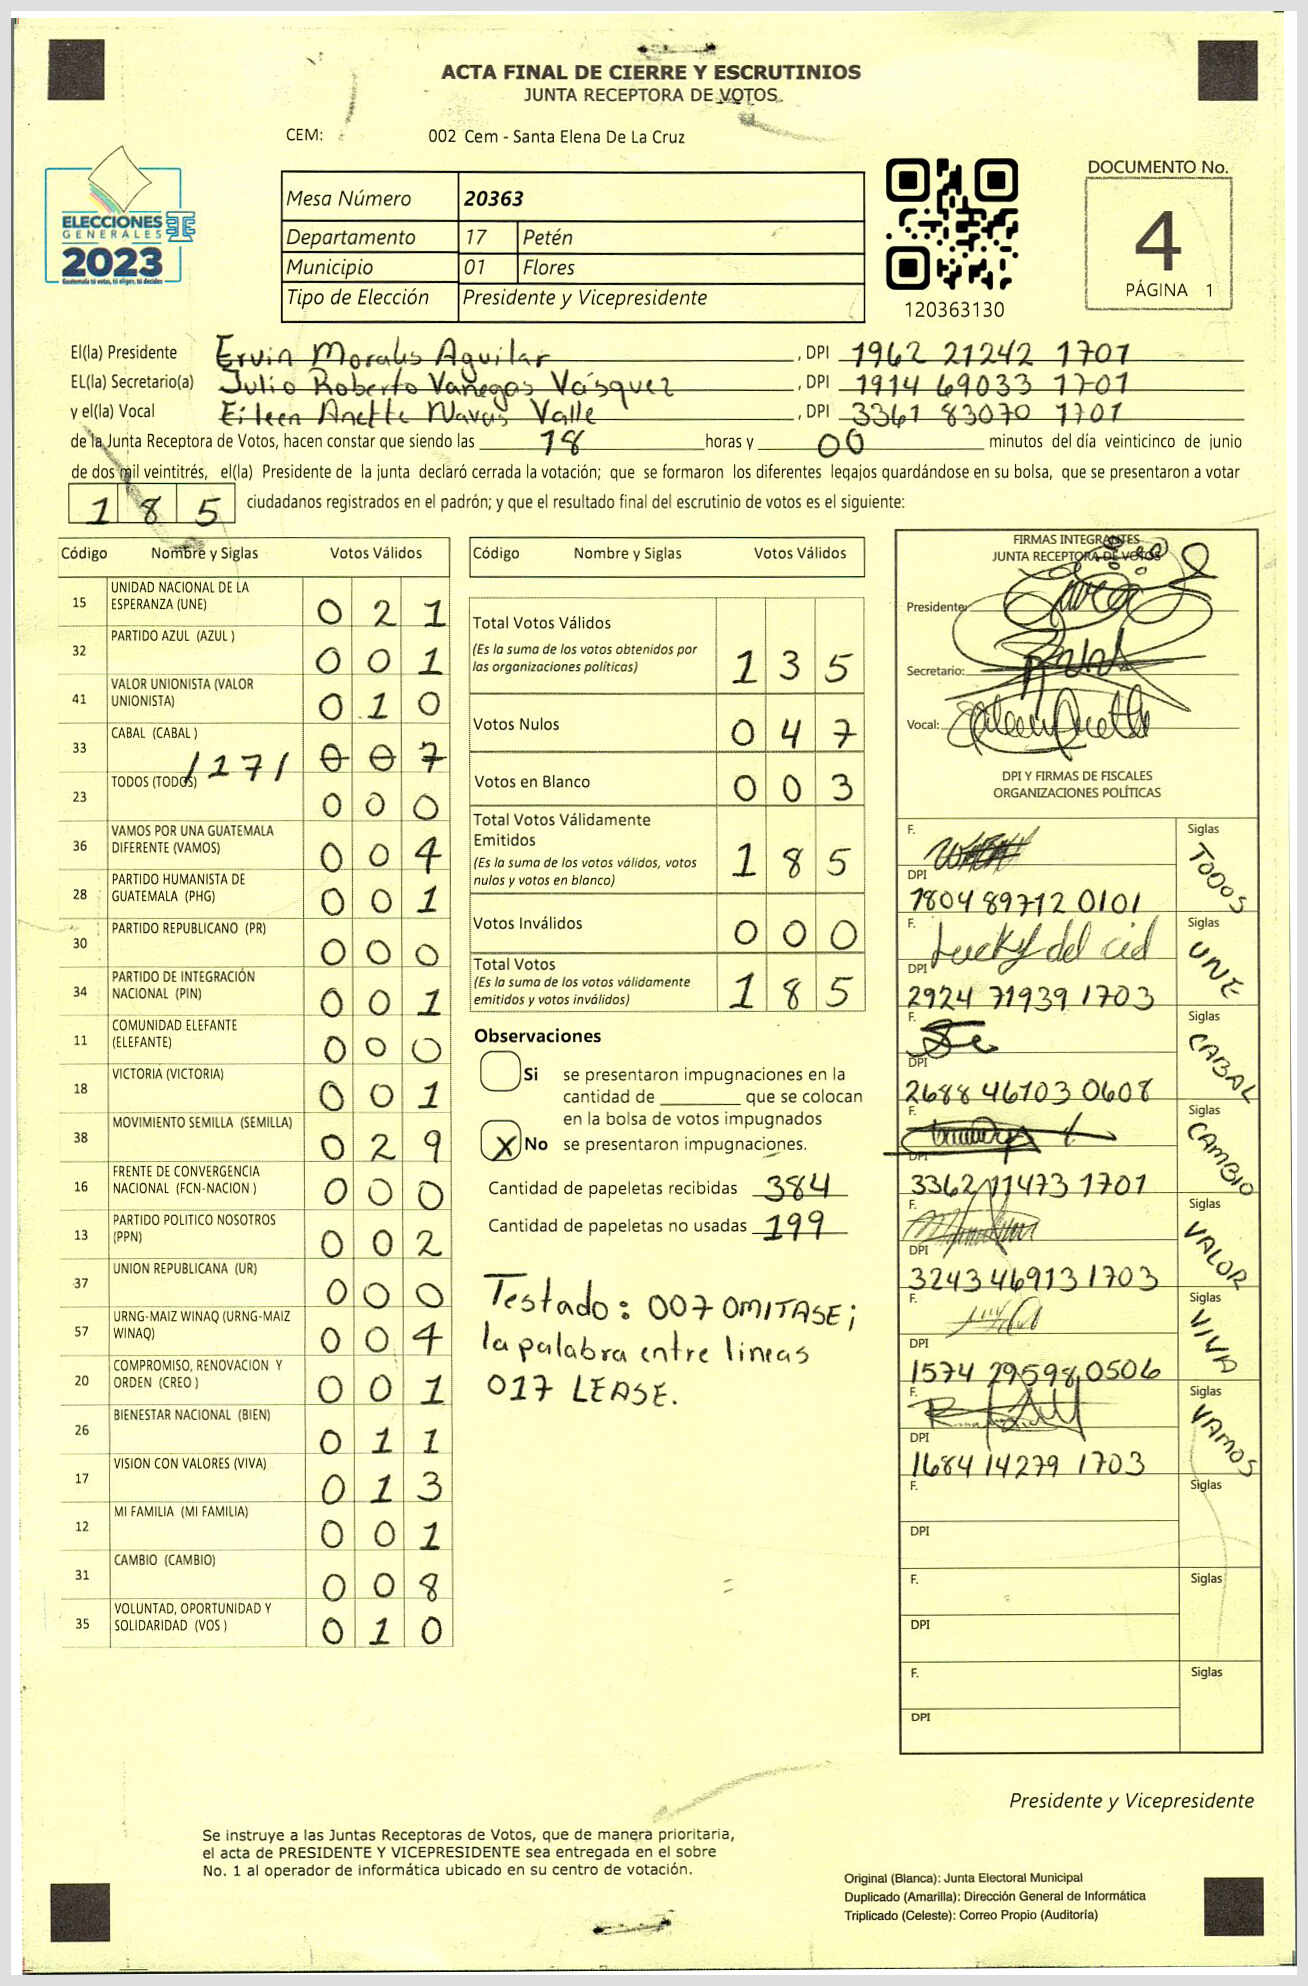 ACTA FINAL DE CIERRE Y ESCRUTINIOS
JUNTA RECEPTORA DE VOTOS
CEM: 002 Cem - Santa Elena De La Cruz
ELECCIONES
GENERALES
2023
Guatemala tú votas, tú eliges, tú decides
TSE
Mesa Número 20363
Departamento 17 Petén
Municipio 01 Flores
Tipo de Elección Presidente y Vicepresidente
120363130
DOCUMENTO No.
4
PÁGINA 1
El(la) Presidente Ervin Morales Aguilar, DPI 1962 21242 1701
EL(la) Secretario(a) Julio Roberto Vanegas Vásquez, DPI 1914 69033 1701
y el(la) Vocal Eileen Anette Navas Valle, DPI 3361 83070 1701
de la Junta Receptora de Votos, hacen constar que siendo las 18 horas y 00 minutos del día veinticinco de junio
de dos mil veintitrés, el(la) Presidente de la junta declaró cerrada la votación; que se formaron los diferentes legajos guardándose en su bolsa, que se presentaron a votar
185 ciudadanos registrados en el padrón; y que el resultado final del escrutinio de votos es el siguiente:
Código Nombre y Siglas Votos Válidos
15 UNIDAD NACIONAL DE LA ESPERANZA (UNE) 0 2 1
32 PARTIDO AZUL (AZUL ) 0 0 1
41 VALOR UNIONISTA (VALOR UNIONISTA) 0 1 0
33 CABAL (CABAL ) / 0 0 7
23 TODOS (TODOS) 0 0 0
36 VAMOS POR UNA GUATEMALA DIFERENTE (VAMOS) 0 0 4
28 PARTIDO HUMANISTA DE GUATEMALA (PHG) 0 0 1
30 PARTIDO REPUBLICANO (PR) 0 0 0
34 PARTIDO DE INTEGRACIÓN NACIONAL (PIN) 0 0 1
11 COMUNIDAD ELEFANTE (ELEFANTE) 0 0 0
18 VICTORIA (VICTORIA) 0 0 1
38 MOVIMIENTO SEMILLA (SEMILLA) 0 2 9
16 FRENTE DE CONVERGENCIA NACIONAL (FCN-NACION ) 0 0 0
13 PARTIDO POLITICO NOSOTROS (PPN) 0 0 2
37 UNION REPUBLICANA (UR) 0 0 0
57 URNG-MAIZ WINAQ (URNG-MAIZ WINAQ) 0 0 4
20 COMPROMISO, RENOVACION Y ORDEN (CREO ) 0 0 1
26 BIENESTAR NACIONAL (BIEN) 0 1 1
17 VISION CON VALORES (VIVA) 0 1 3
12 MI FAMILIA (MI FAMILIA) 0 0 1
31 CAMBIO (CAMBIO) 0 0 8
35 VOLUNTAD, OPORTUNIDAD Y SOLIDARIDAD (VOS ) 0 1 0
Código Nombre y Siglas Votos Válidos
Total Votos Válidos 1 3 5
(Es la suma de los votos obtenidos por
las organizaciones políticas)
Votos Nulos 0 4 7
Votos en Blanco 0 0 3
Total Votos Válidamente
Emitidos 1 8 5
(Es la suma de los votos válidos, votos
nulos y votos en blanco)
Votos Inválidos 0 0 0
Total Votos 1 8 5
(Es la suma de los votos válidamente
emitidos y votos inválidos)
Observaciones
Si se presentaron impugnaciones en la
cantidad de ________ que se colocan
en la bolsa de votos impugnados
X No se presentaron impugnaciones.
Cantidad de papeletas recibidas 384
Cantidad de papeletas no usadas 199
Testado: 007 OMITASE;
la palabra entre lineas
017 LEASE.
FIRMAS INTEGRANTES
JUNTA RECEPTORA DE VOTOS
Presidente:
Secretario:
Vocal:
DPI Y FIRMAS DE FISCALES
ORGANIZACIONES POLÍTICAS
F. Siglas TODOS
DPI 1804 89712 0101
F. Lucky del cid Siglas UNE
DPI 2924 71939 1703
F. Siglas CABAL
DPI 2688 46703 0608
F. Siglas CAMBIO
DPI 3362 11473 1701
F. Siglas VALOR
DPI 3243 46913 1703
F. Siglas VIVA
DPI 1574 29598 0506
F. Siglas VAMOS
DPI 1684 14279 1703
F. Siglas
DPI
F. Siglas
DPI
F. Siglas
DPI
Presidente y Vicepresidente
Se instruye a las Juntas Receptoras de Votos, que de manera prioritaria,
el acta de PRESIDENTE Y VICEPRESIDENTE sea entregada en el sobre
No. 1 al operador de informática ubicado en su centro de votación.
Original (Blanca): Junta Electoral Municipal
Duplicado (Amarilla): Dirección General de Informática
Triplicado (Celeste): Correo Propio (Auditoría)